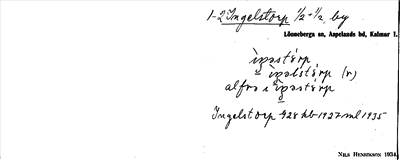 1-2 Ingelstorp 1/2 + 1/2, by
Lönneberga sn, Aspelands hd, Kalmar l.
ìŋəstórp
ìŋəlstórp (r)
alfrə i ìŋəstórp
Ingelstorp 928 hb 1927 ml 1935
NILS HENRIKSON 1934.